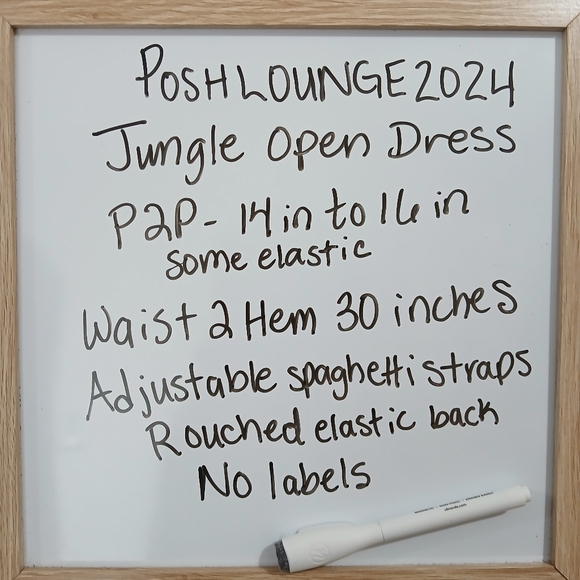 POSHLOUNGE2024
Jungle Open Dress
P2P- 14 in to 16 in
some elastic
Waist 2 Hem 30 inches
Adjustable spaghetti straps
Rouched elastic back
No labels